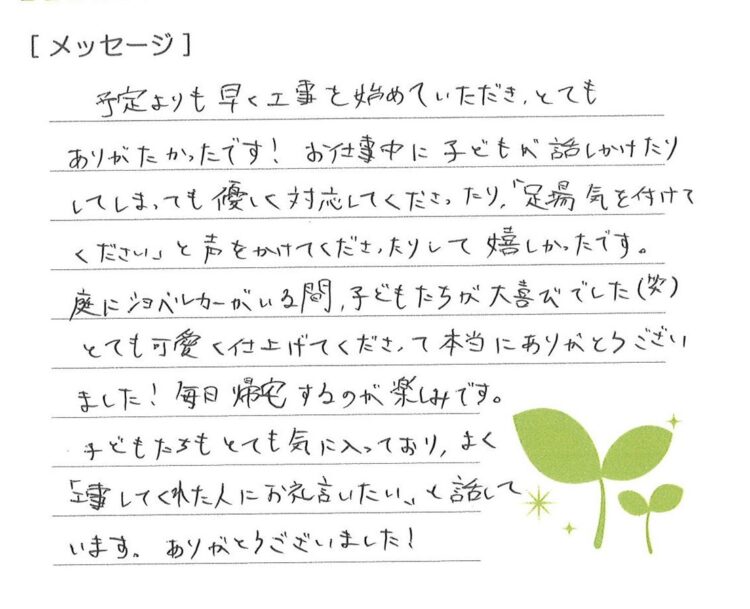 [ メッセージ ]
予定よりも早く工事を始めていただき、とても
ありがたかったです! お仕事中に子どもが話しかけたり
してしまっても優しく対応してくださったり、「足場気を付けて
ください」と声をかけてくださったりして嬉しかったです。
庭にショベルカーがいる間、子どもたちが大喜びでした(笑)
とても可愛く仕上げてくださって本当にありがとうござい
ました! 毎日帰宅するのが楽しみです。
子どもたちもとても気に入っており、よく
「工事してくれた人にお礼言いたい」と話して
います。ありがとうございました!